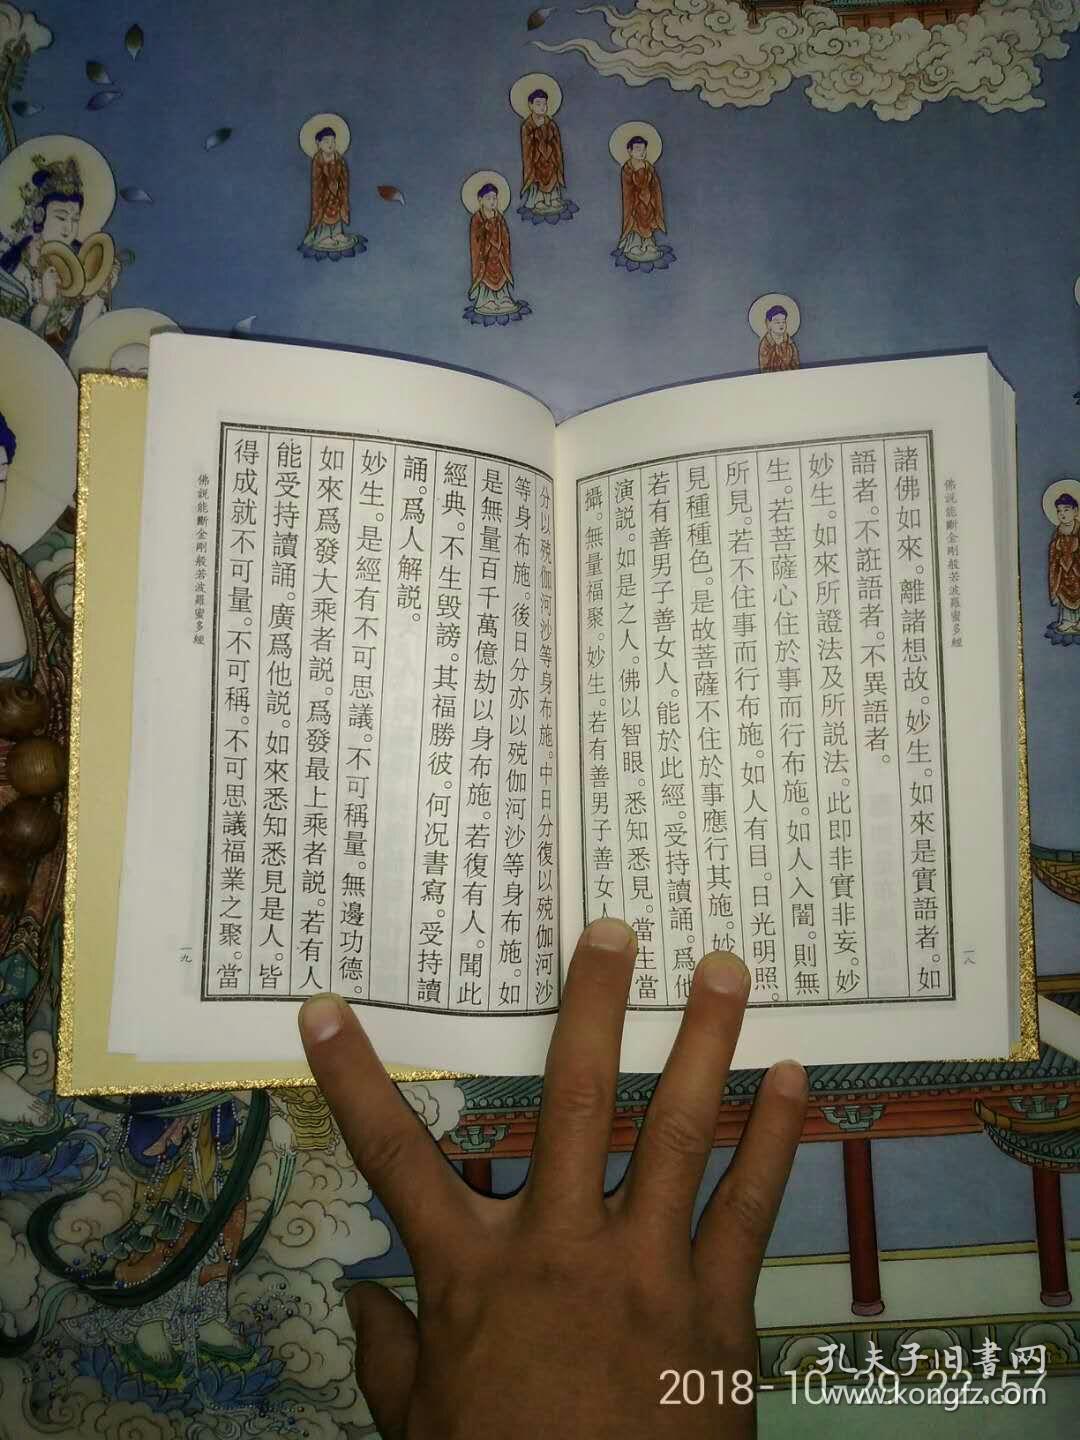 佛説能斷金剛般若波羅蜜多經
諸佛如來。離諸想故。妙生。如來是實語者。如
語者。不誑語者。不異語者。
妙生。如來所證法及所説法。此即非實非妄。妙
生。若菩薩心住於事而行布施。如人入闇。則無
所見。若不住事而行布施。如人有目。日光明照。
見種種色。是故菩薩不住於事應行其施。妙
若有善男子善女人。能於此經。受持讀誦。爲他
演説。如是之人。佛以智眼。悉知悉見。當生當
攝。無量福聚。妙生。若有善男子善女人
一八
分以殑伽河沙等身布施。中日分復以殑伽河沙
等身布施。後日分亦以殑伽河沙等身布施。如
是無量百千萬億劫以身布施。若復有人。聞此
經典。不生毀謗。其福勝彼。何況書寫。受持讀
誦。爲人解説。
妙生。是經有不可思議。不可稱量。無邊功德。
如來爲發大乘者説。爲發最上乘者説。若有人
能受持讀誦。廣爲他説。如來悉知悉見是人。皆
得成就不可量。不可稱。不可思議福業之聚。當
佛説能斷金剛般若波羅蜜多經
一九
孔夫子旧書网
2018-10-29 22:57
www.kongfz.com